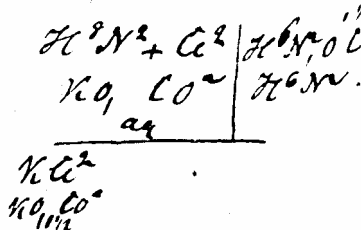 H⁸N² + Cl² | H⁶N²,O C
KO, CO² | H⁶N².
aq
KCl²
KO, CO²